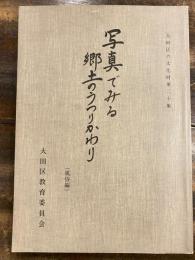 大田区の文化財第二十集
写真でみる
郷土のうつりかわり
(風俗編)
大田区教育委員会